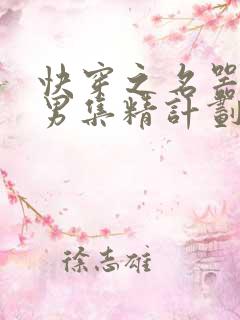 快穿之名器
男集精計劃
徐志雄